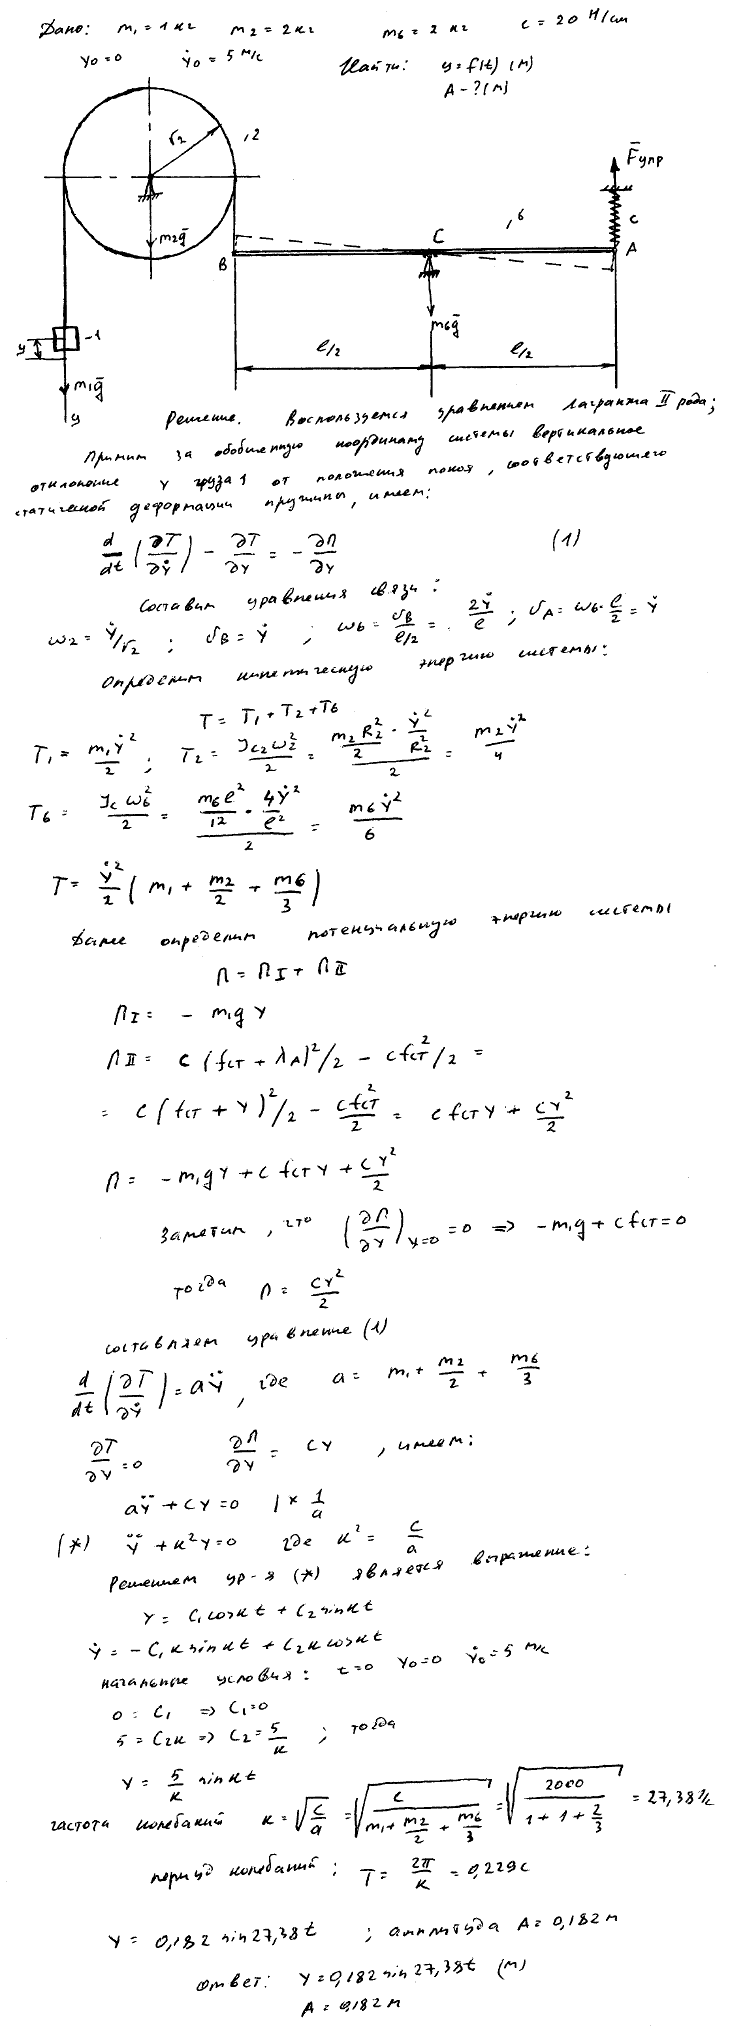 Дано: m₁ = 1 кг   m₂ = 2 кг   m₆ = 2 кг   c = 20 Н/см
y₀ = 0   ẏ₀ = 5 м/с   Найти: y = f(t) (м)
A - ? (м)
r₂
,2
F̄упр
c
,6
m₂ḡ
C
B
A
m₆ḡ
y
-1
ℓ/2
ℓ/2
m₁ḡ
y
Решение. Воспользуемся уравнением Лагранжа II рода;
Примим за обобщенную координату системы вертикальное
отклонение y груза 1 от положения покоя, соответствующего
статической деформации пружины, имеем:
d/dt (∂T/∂ẏ) - ∂T/∂y = - ∂П/∂y   (1)
Составим уравнения связи:
ω₂ = ẏ/r₂ ; υB = ẏ ; ω₆ = υB/(ℓ/2) = 2ẏ/ℓ ; υA = ω₆·ℓ/2 = ẏ
Определим кинетическую энергию системы:
T = T₁ + T₂ + T₆
T₁ = m₁ẏ²/2 ; T₂ = Jc₂ω₂²/2 = (m₂R₂²/2 · ẏ²/R₂²)/2 = m₂ẏ²/4
T₆ = Jcω₆²/2 = (m₆ℓ²/12 · 4ẏ²/ℓ²)/2 = m₆ẏ²/6
T = ẏ²/2 (m₁ + m₂/2 + m₆/3)
Далее определим потенциальную энергию системы
П = ПI + ПII
ПI = - m₁g y
ПII = c (fст + λA)²/2 - cfст²/2 =
= c(fст + y)²/2 - cfст²/2 = cfст y + cy²/2
П = -m₁gy + c fст y + cy²/2
Заметим, что (∂П/∂y)y=0 = 0 => -m₁g + c fст = 0
тогда П = cy²/2
составляем уравнение (1)
d/dt (∂T/∂ẏ) = aÿ, где a = m₁ + m₂/2 + m₆/3
∂T/∂y = 0   ∂П/∂y = cy , имеем:
aÿ + cy = 0 | × 1/a
(*) ÿ + к²y = 0 где к² = c/a
Решением ур-я (*) является выражение:
y = C₁cosкt + C₂sinкt
ẏ = -C₁кsinкt + C₂кcosкt
начальные условия: t=0 y₀=0 ẏ₀=5 м/с
0 = C₁ => C₁=0
5 = C₂к => C₂ = 5/к ; тогда
y = 5/к sinкt
частота колебаний к = √(c/a) = √(c/(m₁ + m₂/2 + m₆/3)) = √(2000/(1 + 1 + 2/3)) = 27,38 1/с
период колебаний; T = 2π/к = 0,229с
y = 0,182 sin27,38t ; амплитуда A = 0,182м
Ответ: y = 0,182sin27,38t (м)
A = 0,182м